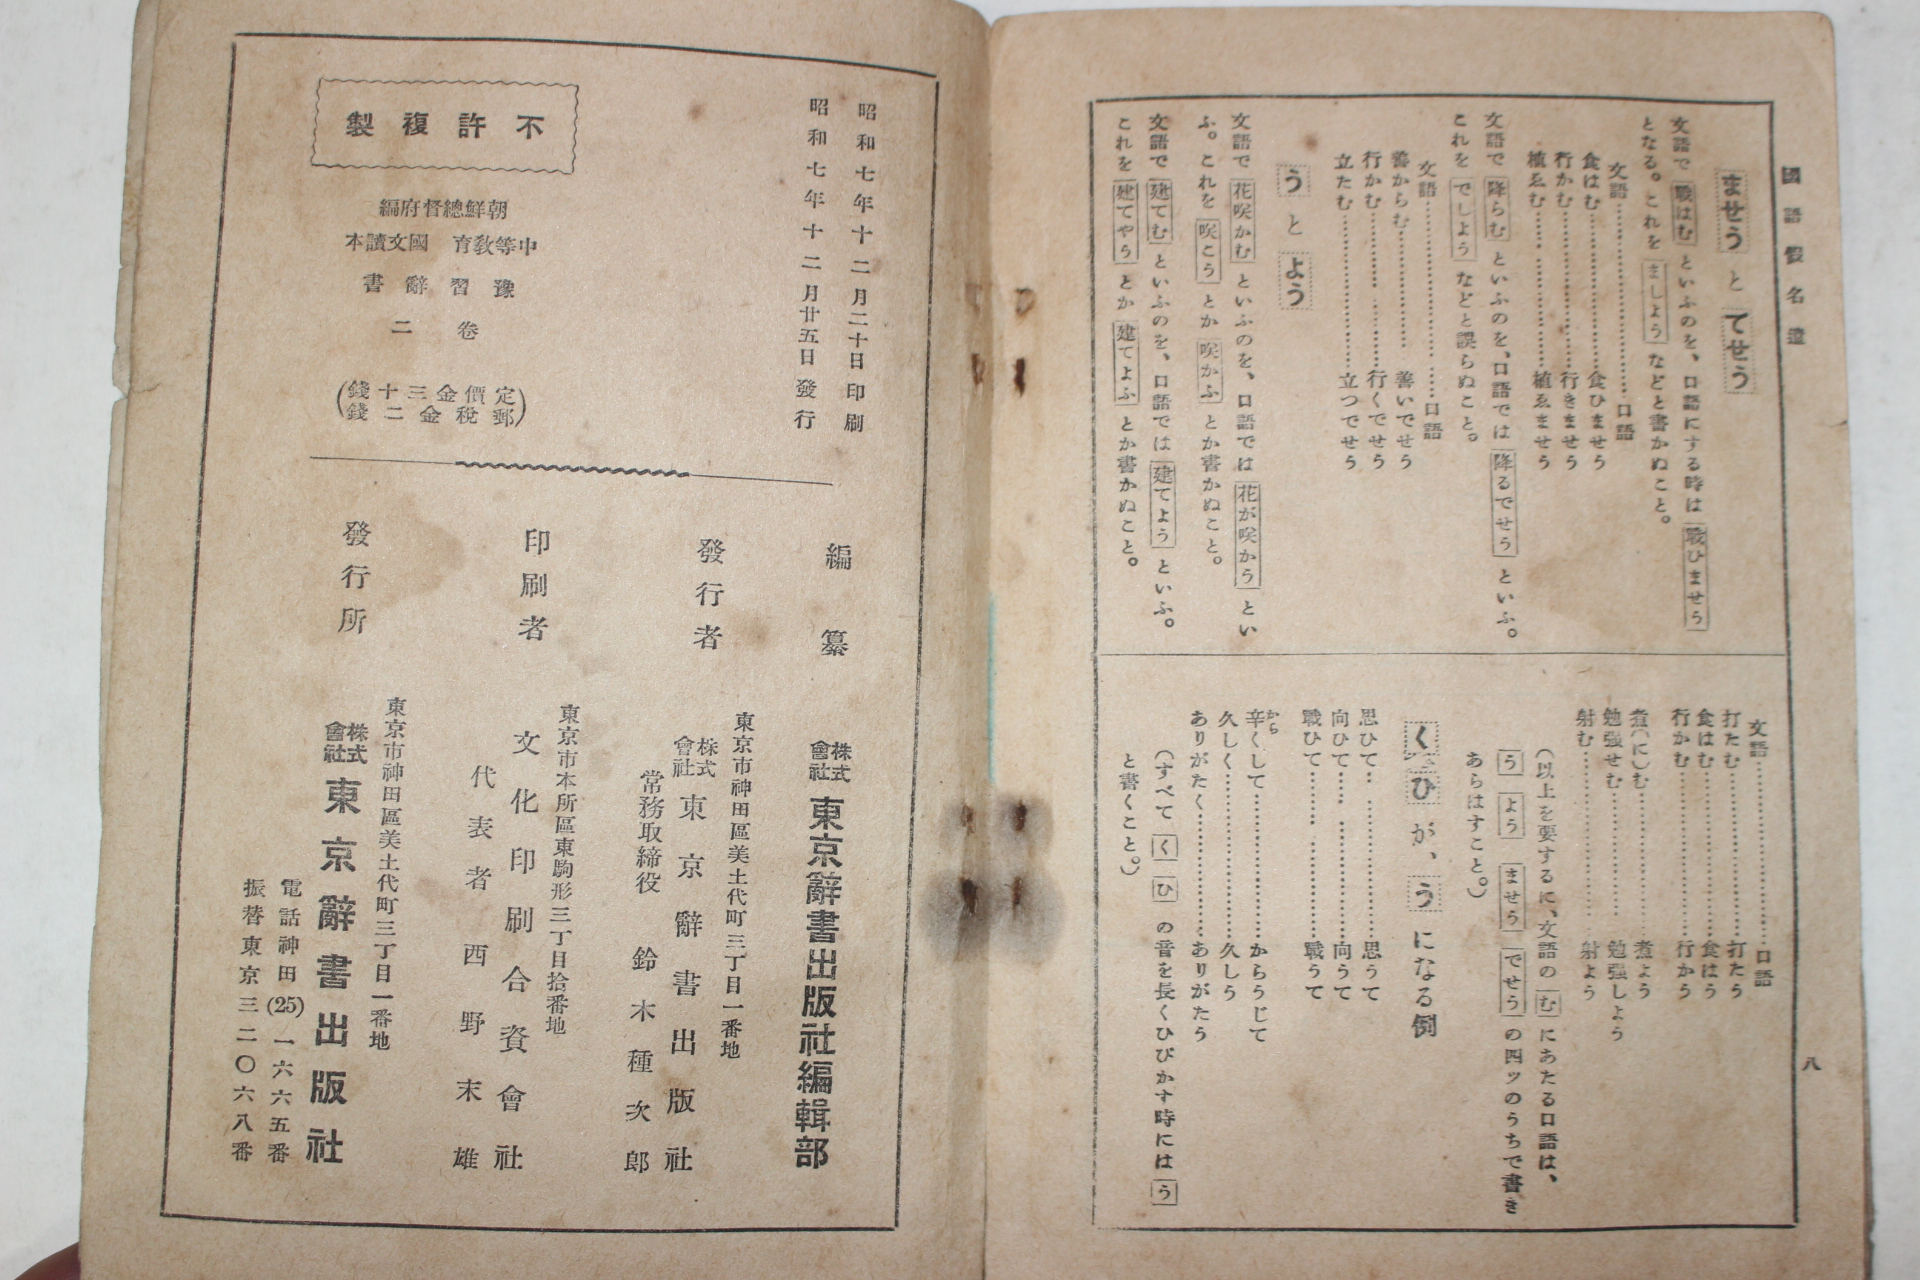 國語假名遣
八
ませう と でせう
文語で 戰はむ といふのを、口語にする時は 戰ひませう
となる。これを ましよう などと書かぬこと。
文語……口語
食はむ……食ひませう
行かむ……行きませう
植ゑむ……植ゑませう
文語で 降らむ といふのを、口語では 降るでせう といふ。
これを でしよう などと誤らぬこと。
文語……口語
善からむ……善いでせう
行かむ……行くでせう
立たむ……立つでせう
う と よう
文語で 花咲かむ といふのを、口語では 花が咲かう とい
ふ。これを 咲こう とか 咲かふ とか書かぬこと。
文語で 建てむ といふのを、口語では 建てよう といふ。
これを 建てやう とか 建てよふ とか書かぬこと。
文語……口語
打たむ……打たう
食はむ……食はう
行かむ……行かう
煮(に)む……煮よう
勉强せむ……勉强しよう
射む……射よう
(以上を要するに、文語の む にあたる口語は、
う よう ませう でせう の四ツのうちで書き
あらはすこと。)
く ひ が、う になる例
思ひて……思うて
向ひて……向うて
戰ひて……戰うて
辛くして……からうじて
から
久しく……久しう
ありがたく……ありがたう
(すべて く ひ の音を長くひびかす時には う
と書くこと。)
昭和七年十二月二十日印刷
昭和七年十二月廿五日發行
不許複製
朝鮮總督府編
中等敎育 國文讀本
豫習辭書
卷二
(定價金三十錢
郵稅金二錢)
編纂
株式會社 東京辭書出版社編輯部
發行者
東京市神田區美土代町三丁目一番地
株式會社 東京辭書出版社
常務取締役 鈴木種次郎
印刷者
東京市本所區東駒形三丁目拾番地
文化印刷合資會社
代表者 西野末雄
發行所
東京市神田區美土代町三丁目一番地
株式會社 東京辭書出版社
電話神田(25)一六六五番
振替東京三二〇六八番